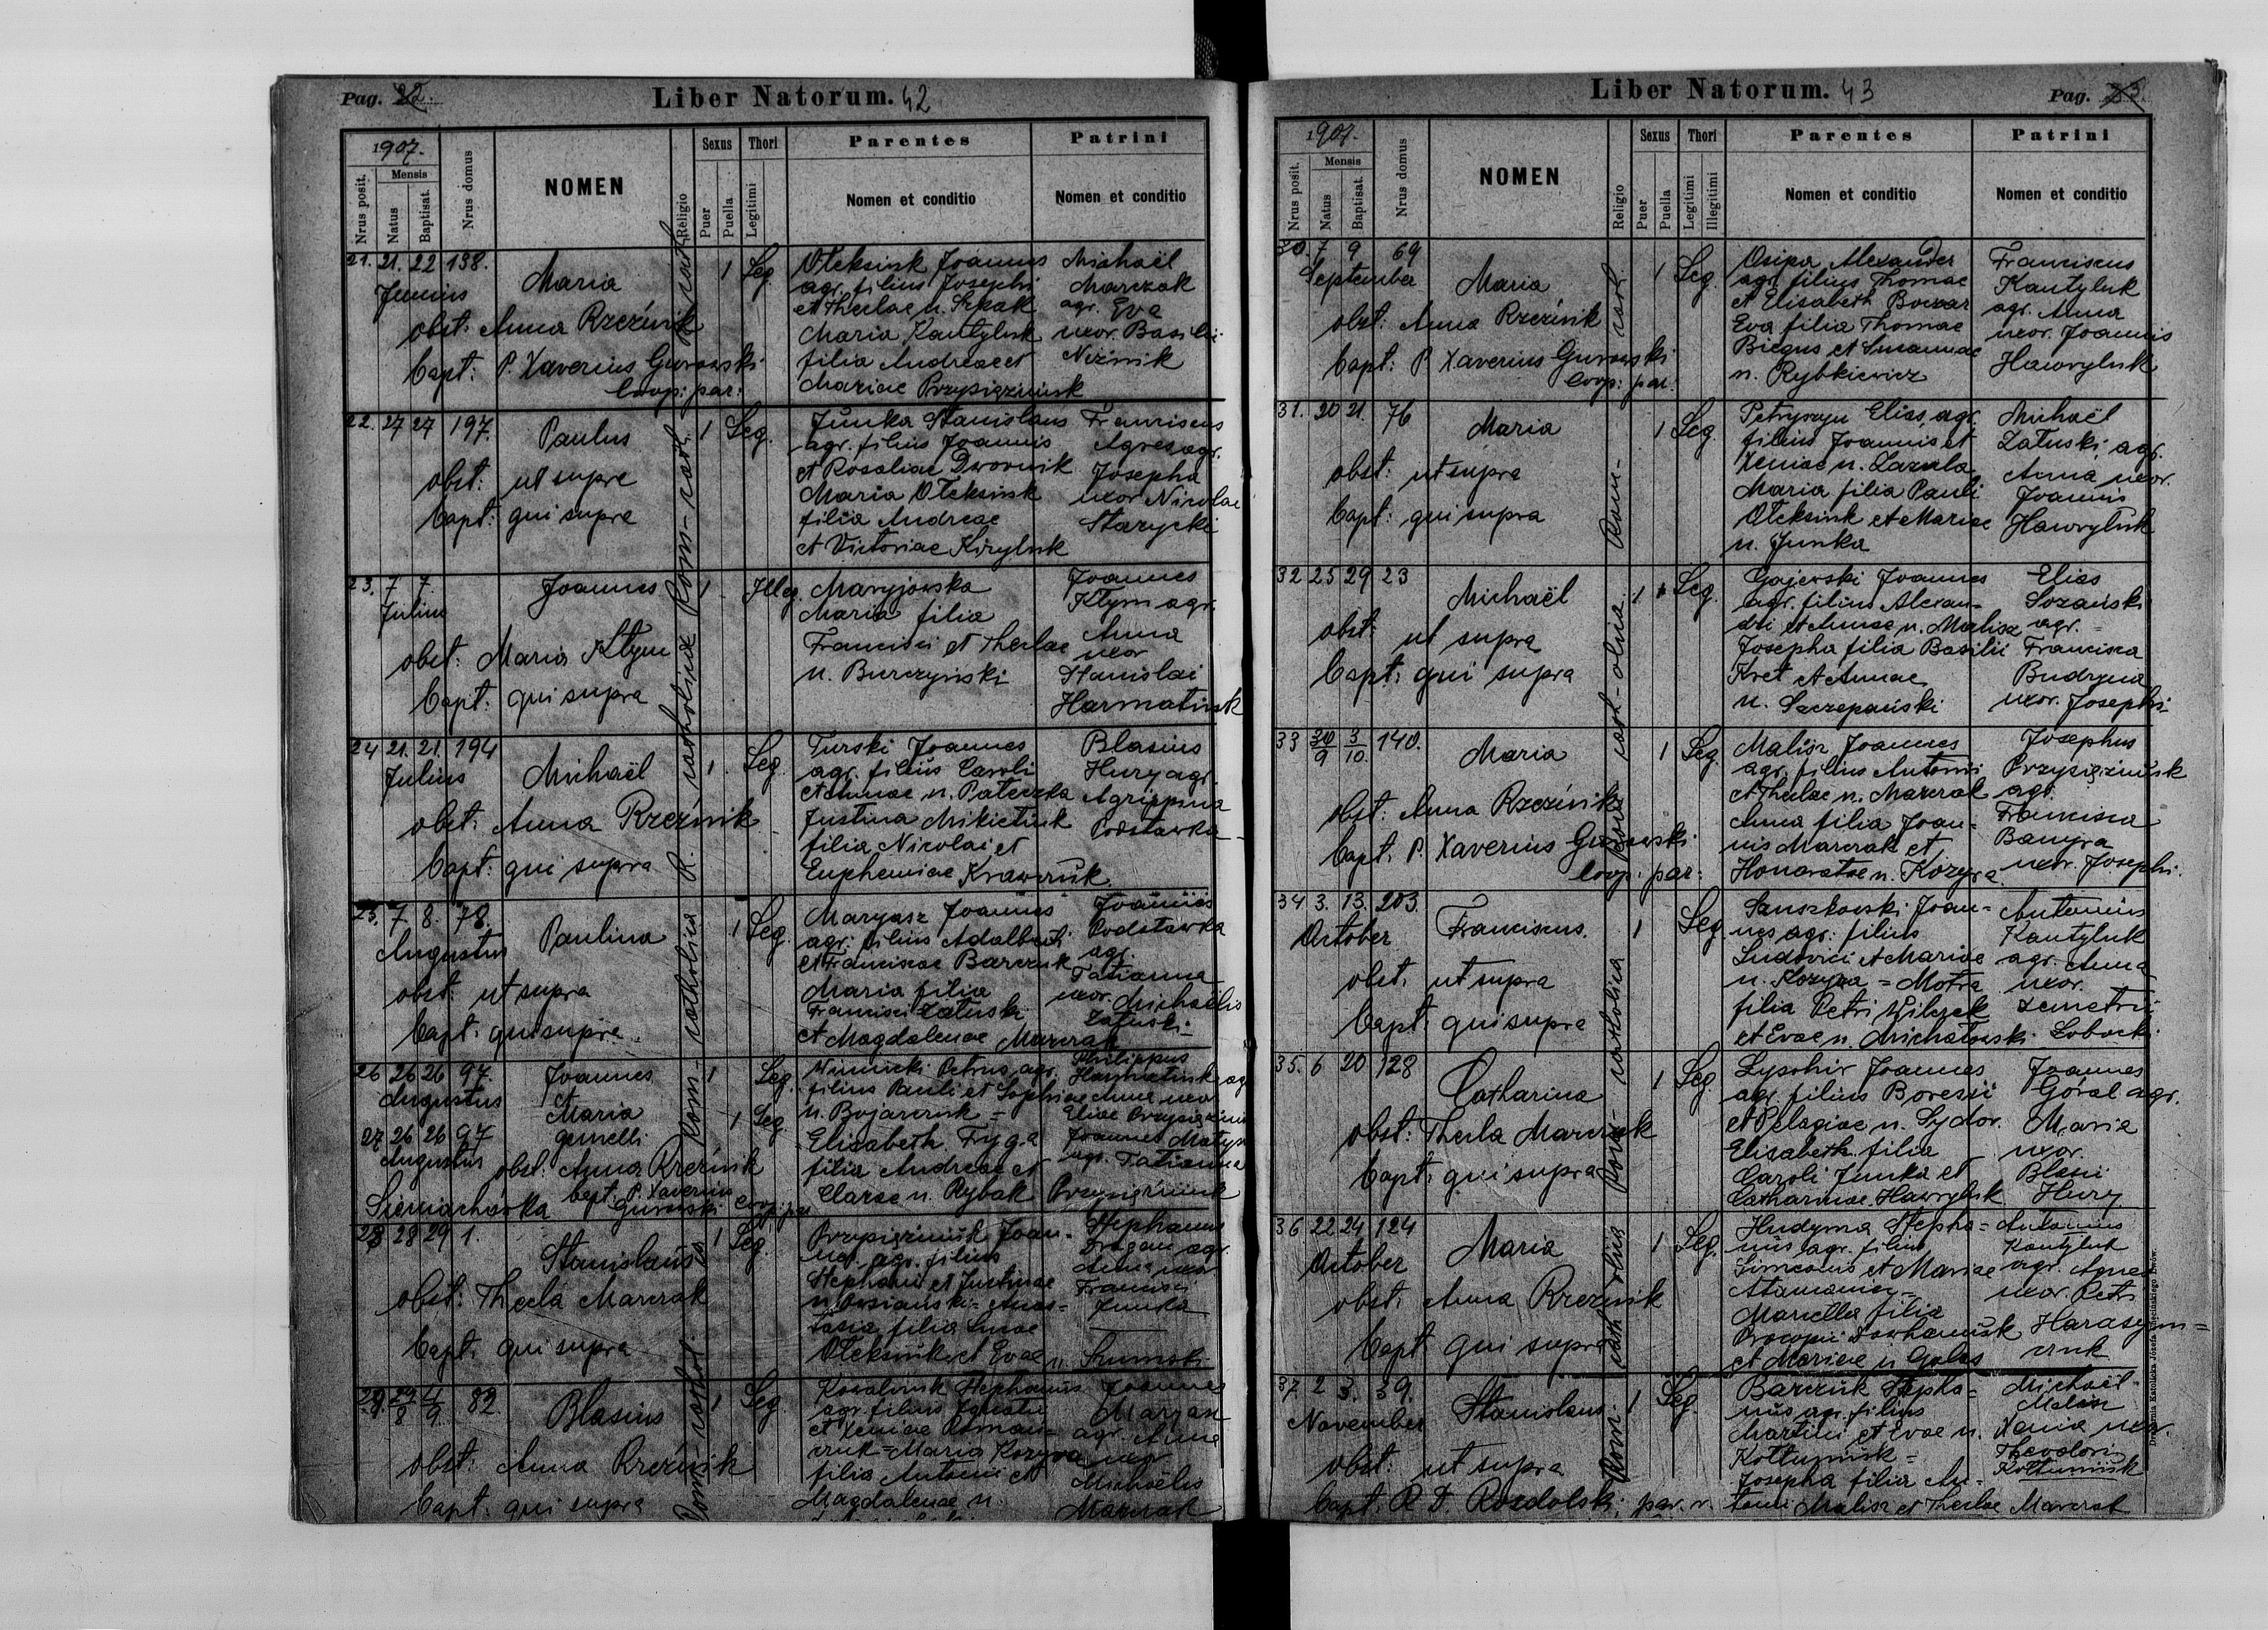 Pag. 22.
Liber Natorum. 42
1907.
Nrus posit.
Mensis
Natus
Baptisat.
Nrus domus
NOMEN
Religio
Sexus
Puer
Puella
Thori
Legitimi
Parentes
Nomen et conditio
Patrini
Nomen et conditio
21. 21. 22 138.
Junius
Maria
1 Leg.
obst: Anna Rzeźnik
bapt: P. Xaverius Gurowski
coop: par:
Oleksiuk Joannes
agr. filius Josephi
et Theclae n.
Maria Kantyluk
filia Andreae et
Mariae Przysiężniuk
Michaël
Marczak
agr. Eva
uxor. Basilii
22. 27 27 197.
Paulus
1 Leg.
obst: ut supra
bapt: qui supra
Junka Stanislaus
agr. filius Joannis
et Rosaliae Dwornik
Maria Oleksiuk
filia Andreae
et Victoriae Kiryluk
Franciscus
agr.
Josepha
uxor Nicolai
Starycki
23. 7 7
Julius
Joannes
1 Illeg.
obst: Maria Klym
bapt: qui supra
Maryjowska
Maria filia
Francisci et Theclae
n. Burczyński
Joannes
Klym agr.
Anna
uxor
Stanislai
Harmatiuk
24 21. 21. 194
Julius
Michaël
1 Leg.
obst: Anna Rzeźnik
bapt: qui supra
Turski Joannes
agr. filius Caroli
et Annae n. Pateczka
Justina Mikietiuk
filia Nicolai et
Euphemiae Krawczuk
Blasius
Hury agr.
Agrippina
Podstawka
25. 7 8. 78.
Augustus
Paulina
1 Leg.
obst: ut supra
bapt: qui supra
Maryasz Joannes
agr. filius Adalberti
et Franciscae Barczuk
Maria filia
Francisci Załuski
et Magdalenae Marczak
Joannes
Podstawka
agr.
Tatianna
uxor. Michaëlis
Załuski
26 26 26 97.
Augustus
Joannes
1 Leg.
Maria
1 Leg.
gemelli
27 26 26 97
Augustus
obst. Anna Rzeźnik
bapt. P. Xaverius
Gurowski coop: par
Sieniachówka
Winnicki Petrus, agr.
filius Pauli et Sophiae
n. Bojarczuk =
Elisabeth Fryga
filia Andreae et
Clarae n. Rybak
Philippus
Harmatiuk agr
Anna uxor
Eliae
Joannes
agr. Tatianna
Przysiężniuk
28 28 29 1.
Stanislaus
1 Leg.
obst: Thecla Marczak
bapt: qui supra
Przysiężniuk Joan-
nes agr. filius
Stephani et Justinae
n. = Anas-
tasia filia Lucae
Oleksiuk et Evae n. Szumski
Stephanus
Dragan agr.
Anna uxor
Francisci
Junka
29. 29/8 4/9 82
Blasius
1 Leg
obst: Anna Rzeźnik
bapt: qui supra
Kowalczuk Stephanus
agr. filius Ignatii
et Xeniae Roman-
czuk = Maria Kozyra
filia Antonii et
Magdalenae n.
Joannes
agr. Anna
uxor
Michaëlis
Marczak
Liber Natorum. 43
Pag. 23.
1907.
Nrus posit.
Mensis
Natus
Baptisat.
Nrus domus
NOMEN
Religio
Sexus
Puer
Puella
Thori
Legitimi
Illegitimi
Parentes
Nomen et conditio
Patrini
Nomen et conditio
30. 7 9 69
September
Maria
1 Leg.
obst: Anna Rzeźnik
bapt: P. Xaverius Gurowski
coop: par.
Osipa Alexander
agr. filius Thomae
et Elisabeth Boczar
Eva filia Thomae
Biegus et Susannae
n. Rybkiewicz
Franciscus
Kantyluk
agr. Anna
uxor. Joannis
Hawryluk
31. 20 21. 76
Maria
1 Leg.
obst: ut supra
bapt: qui supra
Petryszyn Elias, agr.
filius Joannis et
Xeniae n. Zazula
Maria filia Pauli
Oleksiuk et Mariae
n. Junka
Michaël
Załuski, agr.
Anna uxor.
Joannis
Hawryluk
32 25 29 23
Michaël
1 Leg.
obst: ut supra
bapt: qui supra
Gajewski Joannes
agr. filius Alexan-
dri et Annae n. Malisz
Josepha filia Basilii
Kret et Annae
n. Szczepański
Elias
Sozański
agr. =
Francisca
Budzyna
uxor. Josephi
33 30/9 3/10. 140.
Maria
1 Leg.
obst: Anna Rzeźnik
bapt. P. Xaverius Gurowski
coop: par:
Malisz Joannes
agr. filius Antonii
et Theclae n. Marczak
Anna filia Joan-
nis Marczak et
Honoratae n. Kozyra
Josephus
Przysiężniuk
agr.
Francisca
Banyra
uxor. Josephi.
34 3. 13. 203.
October
Franciscus.
1 Leg.
obst. ut supra
bapt: qui supra
Joan=
nes agr. filius
Ludovici et Mariae
n. Kozyra = Motra
filia Petri Wilczek
et Evae n. Michałowski
Antonius
Kantyluk
agr. Anna
uxor.
Demetrii
Łobocki
35. 6 20 128
Catharina
1 Leg.
obst: Thecla Marczak
bapt. qui supra
Lysohir Joannes
agr. filius Boresii
et Pelagiae n. Sydor.
Elisabeth filia
Caroli Junka et
Catharinae Hawryluk
Joannes
Góral agr.
Maria
uxor.
Blasii
Hury
36 22 24 124
October
Maria
1 Leg.
obst. Anna Rzeźnik
bapt qui supra
Hudyma Stepha=
nus agr. filius
Simeonis et Mariae
Atamaniuk =
Marcella filia
Procopii Dowhaniuk
et Mariae n. Galas
Antonius
Kantyluk
agr. Agnes
uxor. Petri
Harasym=
czuk
37. 2 3. 39.
November
Stanislaus
1 Leg.
obst: ut supra
bapt. R. D. Rozdolski par. r.
Barczuk Stepha=
nus agr. filius
Martini et Evae n.
Kołtuniuk =
Josepha filia An-
tonii Malisz et Theclae Marczak
Michaël
Malisz
Xenia uxor.
Theodori
Kołtuniuk
Drukarnia Katolicka Józefa Chęcińskiego Lwów.